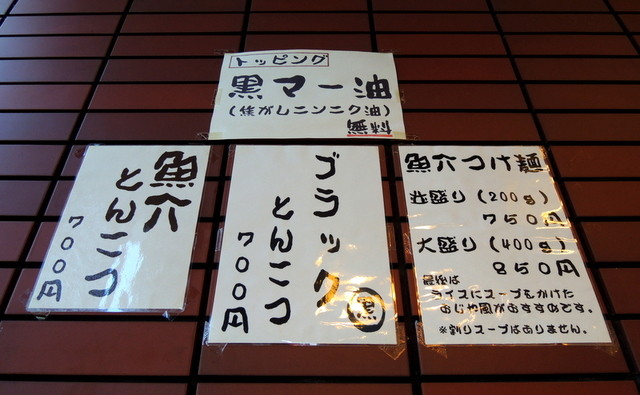 トッピング
黒マー油
(焦がしニンニク油)
無料
魚介
とんこつ
700円
ブラック
とんこつ
700円
黒
魚介つけ麺
並盛り(200g)
750円
大盛り(400g)
850円
最後は
ライスにスープをかけた
おじや風がおすすめです。
※割りスープはありません。